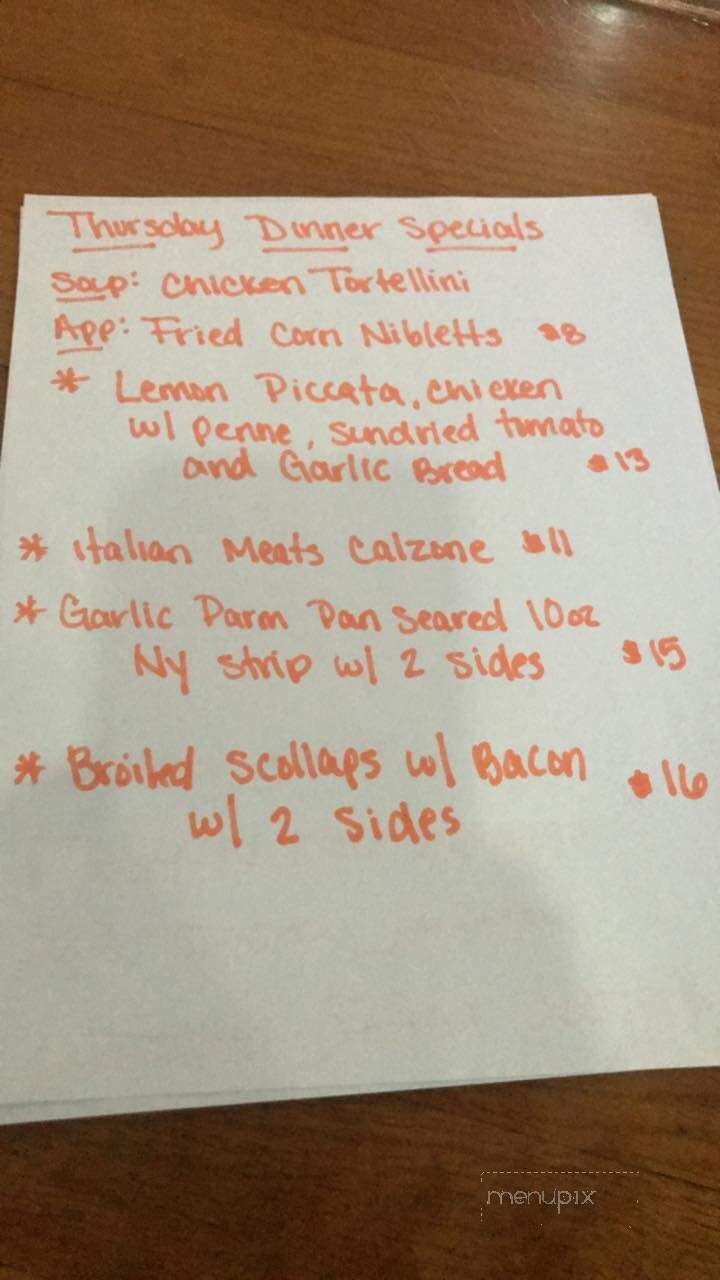 Thursday Dinner Specials
Soup: Chicken Tortellini
App: Fried Corn Nibletts $8
* Lemon Piccata, chicken
w/ penne, sundried tomato
and Garlic Bread $13
* Italian Meats Calzone $11
* Garlic Parm Pan Seared 10oz
Ny strip w/ 2 sides $15
* Broiled Scollaps w/ Bacon $16
w/ 2 sides
menupix